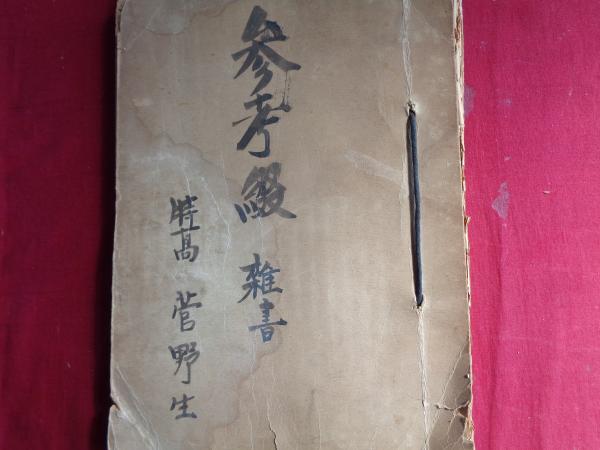 参考綴 雑書
特高 菅野生